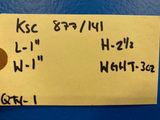 KSC 877/141
L-1" H-2 1/2
W-1" WGHT-3oz
QTY-1